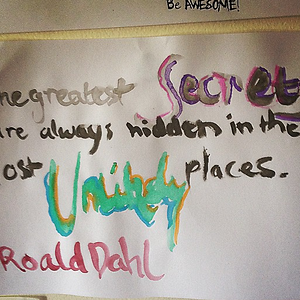 Be AWESOME!
he greatest Secret
are always hidden in the
ost Unlikely places.
Roald Dahl